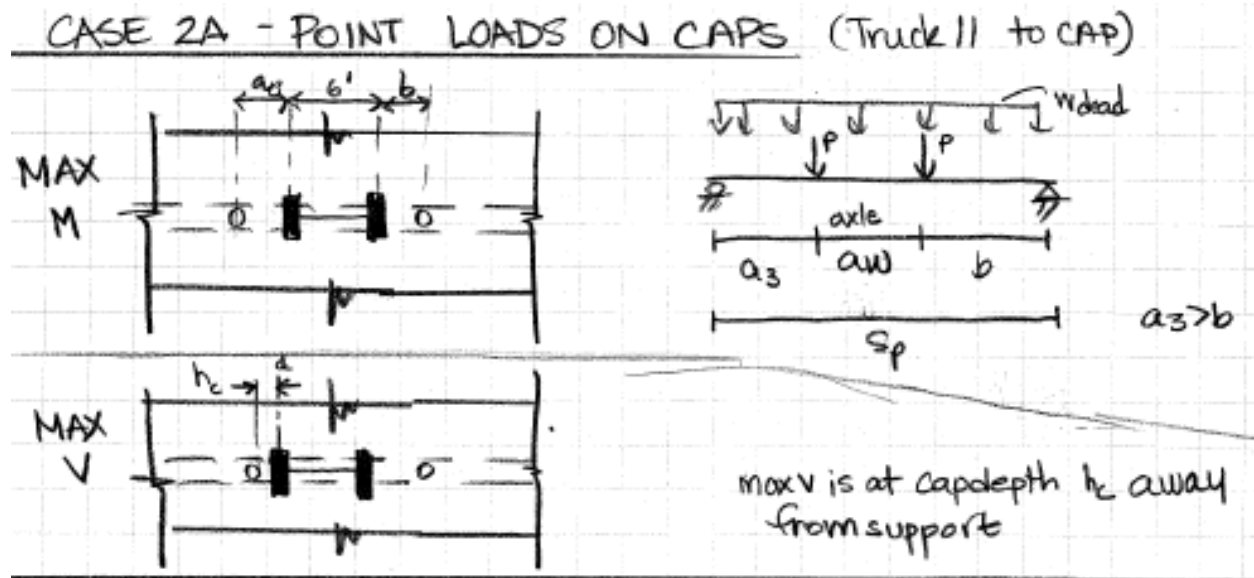 CASE 2A - POINT LOADS ON CAPS (Truck || to CAP)
6' b
MAX
M
O O
Wdead
P P
axle
a3 aw b
Sp
a3>b
hc
MAX
V
O O
max V is at capdepth hc away
from support